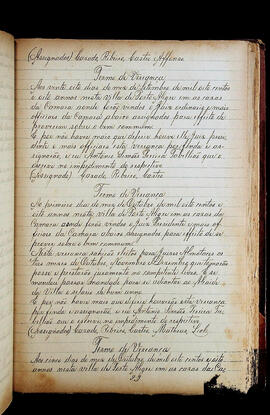 (Assignados) Ribeiro Castro Affonso
Termo de Vereança
Aos vinte e sete dias do mez de Setembro de mil e oito centos
e oito annos nesta villa de Porto Alegre em as casas
da Camara onde forão vindos o Juiz ordinario e mais
officiaes da Camara abaixo assignados para effeito de
proverem sobre o bem commum.
E por não haver mais que dizer houve elle Juiz presi-
dente e mais officiaes esta vereança por finda e as-
signarão, e eu Antonio Simão Pereira Tabellião que o
escrevi no impedimento do respectivo
(Assignados) Ribeiro, Castro
Termo de Vereança
Ao primeiro dias do mez de Outubro de mil e oito centos e
oito annos nesta villa de Porto Alegre em as casas da
Camara onde forão vindo o Juiz Presidente e mais off-
iciaes da Camara abaixo assignados para effeito de se
prover sobre o bem commum.
Nesta vereança sahirão eleitos para Juizes Almotaces os
tres mezes de Outubro, Novembro e Dezembro que tomarão
posse e prestarão juramento na competente livro. E se
mandou passar mandado para se adiantar ao
da Villa o salario de hum anno.
E por não haver mais que dizer houverão esta vereança
por finda e assignarão, e eu Antonio Simão Pereira Ta-
bellião que o escrevi no impedimento do respectivo
(Assignados) Ribeiro, Castro, Matheus, Leal,
Termo de Vereança
Aos cinco dias do mez de Outubro de mil e oito centos e oito
annos nesta villa de Porto Alegre em as casas da Ca-